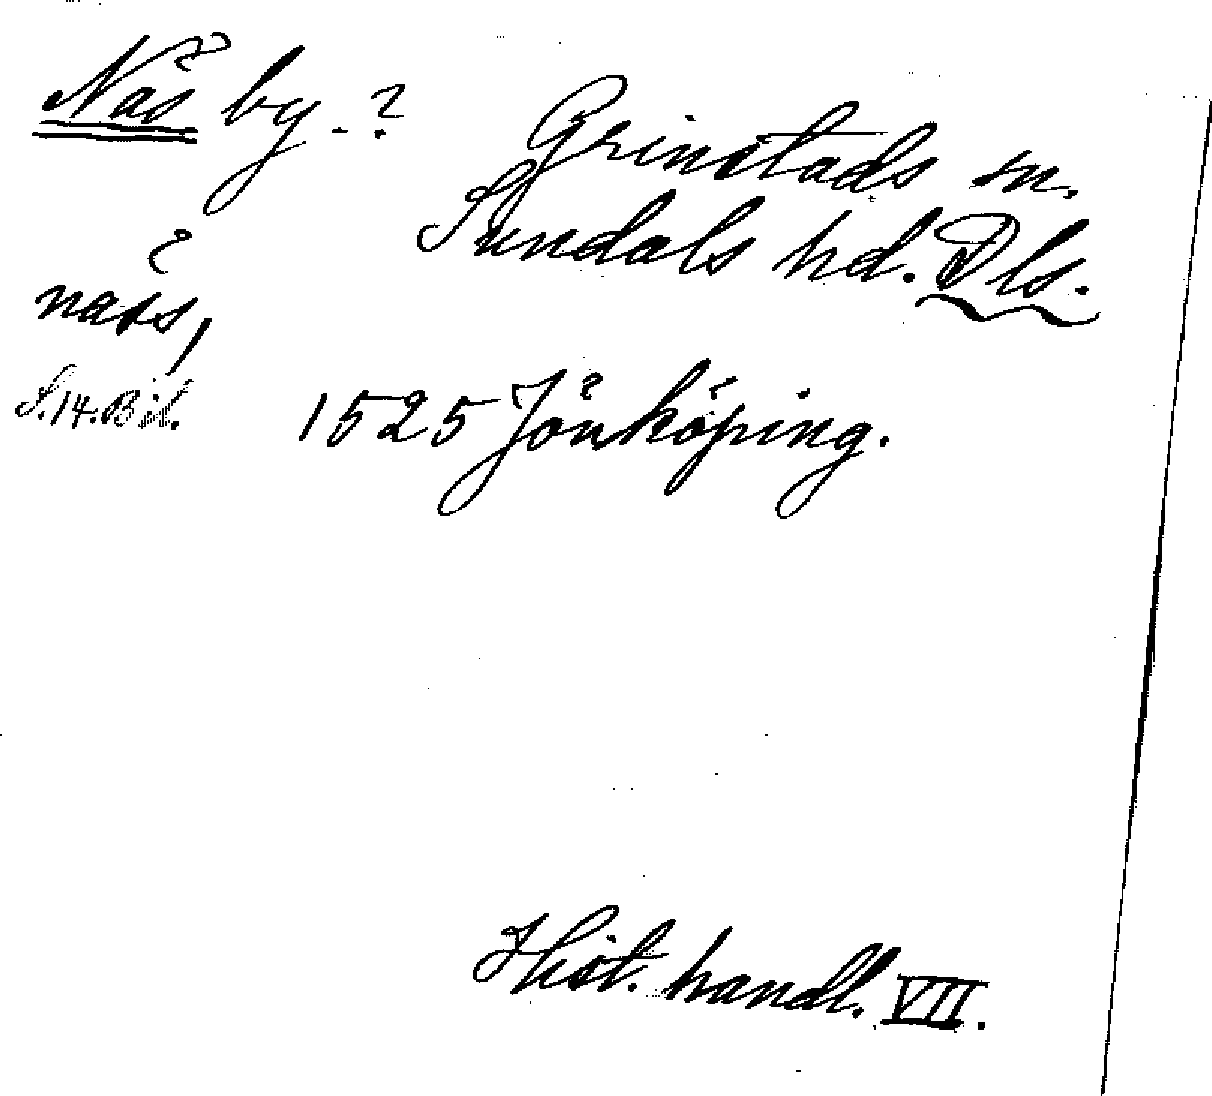 Näs by. ?
Grinstads sn.
Sundals hd. Dls.
näss,
S. 14. Bil.
1525 Jönköping.
Hist. handl. VII.